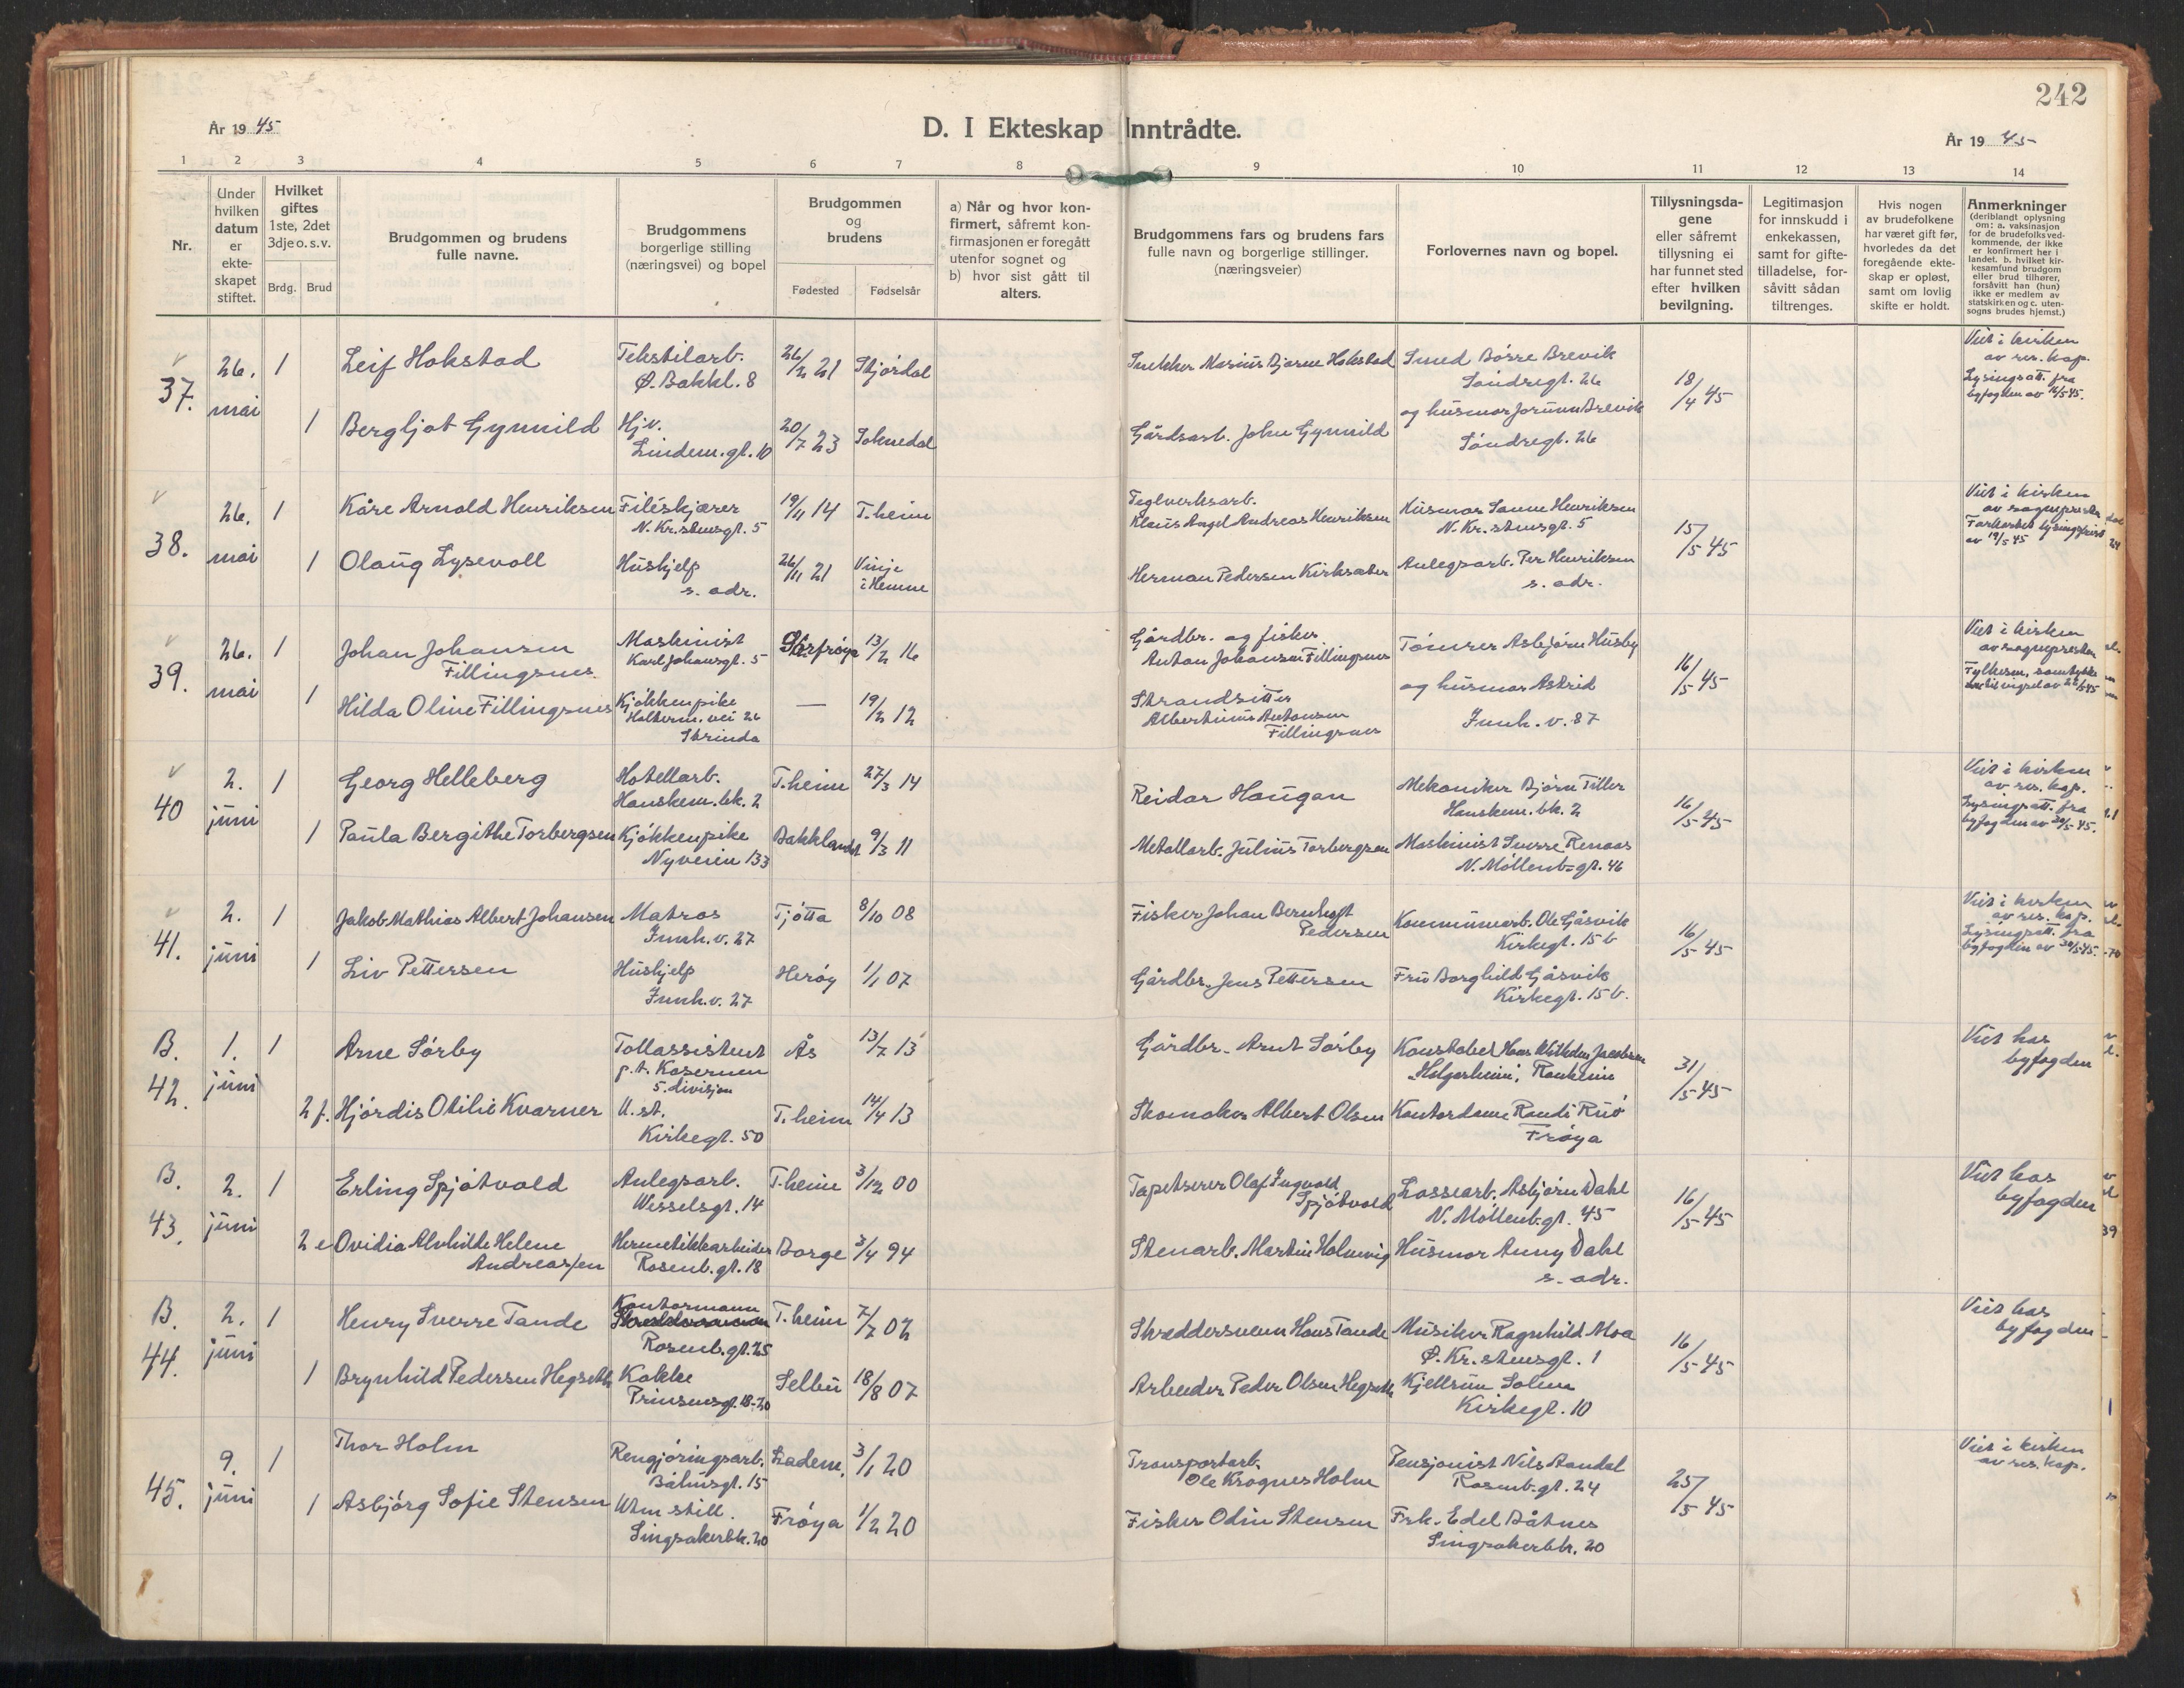 242
År 1945
D. I Ekteskap Inntrådte.
År 1945
1 2 3 4 5 6 7 8 9 10 11 12 13 14
Nr.
Under hvilken datum er ekteskapet stiftet.
Hvilket giftes 1ste, 2det 3dje o.s.v.
Brdg. Brud
Brudgommen og brudens fulle navne.
Brudgommens borgerlige stilling (næringsvei) og bopel
Brudgommen og brudens
Fødested Fødselsår
a) Når og hvor konfirmert, såfremt konfirmasjonen er foregått utenfor sognet og
b) hvor sist gått til alters.
Brudgommens fars og brudens fars fulle navn og borgerlige stillinger. (næringsveier)
Forlovernes navn og bopel.
Tillysningsdagene eller såfremt tillysning ei har funnet sted efter hvilken bevilgning.
Legitimasjon for innskudd i enkekassen, samt for giftetilladelse, forsåvitt sådan tiltrenges.
Hvis nogen av brudefolkene har været gift før, hvorledes da det foregående ekteskap er opløst, samt om lovlig skifte er holdt.
Anmerkninger (deriblandt oplysning om: a. vaksinasjon for de brudefolk vedkommende, der ikke er konfirmert her i landet. b. hvilket kirkesamfund brudgom eller brud tilhører, forsåvitt han (hun) ikke er medlem av statskirken og c. utensogns brudes hjemst.)
37. 26. mai 1 Leif Hokstad Tekstilarb. Ø. Bakkl. 8 26/2 21 Stjørdal
Snekker Marius Bjarne Hokstad Smed Børre Brevik Søndregt. 26 18/4 45
Viet i kirken av res. kap. Lysingsatt. fra byfogden av 16/5 45.
1 Bergljot Gynnild Hjv. Lindem.gt. 10 20/7 23 Soknedal
Gårdsarb. John Gynnild og husmor Jorunn Brevik Søndregt. 26
38. 26. mai 1 Kåre Arnold Henriksen Filéskjærer N. Kr.stensgt. 5 19/11 14 T.heim
Teglverksarb. Klaus Angel Andreas Henriksen Husmor Sanne Henriksen N. Kr.stensgt. 5 15/5 45
Viet i kirken av sognepresten Forkortet lysingsfrist av 19/5 45
1 Olaug Lysevoll Hushjelp s. adr. 26/11 21 Vinje i Hemne
Herman Pedersen Kirksæter Anlegsarb. Per Henriksen s. adr.
39. 26. mai 1 Johan Johansen Fillingsnes Maskinist Karl Johansgt. 5 Sørfrøya 13/2 16
Gårdbr. og fisker Anton Johansen Fillingsnes Tømrer Asbjørn Husby 16/5 45
Viet i kirken av sognepresten Fylkesm. samtykke til vigsel av 22/5 45
1 Hilda Oline Fillingsnes Kjøkkenpike Halterm. vei 26 Strinda — 19/2 12
Strandsitter Albertinius Antonsen Fillingsnes og husmor Astrid Innh. v. 87
40 2. juni 1 Georg Helleberg Hotellarb. Hanskem. bk. 2 T.heim 27/3 14
Reidar Haugan Mekaniker Bjørn Tiller Hanskem. bk. 2 16/5 45
Viet i kirken av res. kap. Lysingsatt. fra byfogden av 30/5 45.
1 Paula Bergithe Torbergsen Kjøkkenpike Nyveien 133 Bakklandet 9/3 11
Metallarb. Julius Torbergsen Maskinist Sverre Renaas N. Møllenb-gt. 46
41. 2. juni 1 Jakob Mathias Albert Johansen Matros Innh. v. 27 Tjøtta 8/10 08
Fisker Johan Bernhoft Pedersen Kommunearb. Ole Gåsvik Kirkegt. 15 b 16/5 45
Viet i kirken av res. kap. Lysingsatt. fra byfogden av 30/5 45.
1 Liv Pettersen Hushjelp Innh. v. 27 Herøy 1/1 07
Gårdbr. Jens Pettersen Fru Borghild Gåsvik Kirkegt. 15 b.
B. 42. 1. juni 1 Arne Sørby Tollassistent p.t. Kasernen 5. divisjon Ås 13/7 13
Gårdbr. Arnt Sørby Konstabel Hans Wilhelm Jacobsen "Holgerheim", Ranheim 31/5 45
Viet hos byfogden
2 f. Hjørdis Otilie Kvarner U. st. Kirkegt. 50 T.heim 14/4 13
Skomaker Albert Olsen Kontordame Randi Riø Frøya
B. 43. 2. juni 1 Erling Spjøtvold Anlegsarb. Wesselsgt. 14 T.heim 3/12 00
Tapetserer Olaf Ingvald Spjøtvold Lossearb. Asbjørn Dahl N. Møllenb.gt. 45 16/5 45
Viet hos byfogden
2 e Ovidia Alvhilde Helene Andreassen Hermetikkarbeider Rosenb.gt. 18 Borge 3/4 94
Stenarb. Martin Holmvig Husmor Anny Dahl s. adr.
B. 44. 2. juni 1 Henry Sverre Tande Kontormann Rosenb.gt. 25 T.heim 7/7 02
Skreddersvenn Hans Tande Musiker Ragnhild Moa Ø. Kr.stensgt. 1 16/5 45
Viet hos byfogden
1 Brynhild Pedersen Hegseth Kokke Prinsensgt. 18-20 Selbu 18/8 07
Arbeider Peder Olsen Hegseth Kjellrun Solem Kirkegt. 10
45. 9. juni 1 Thor Holm Rengjøringsarb. Båhusgt. 15 Ladem. 3/1 20
Transportarb. Ole Krognes Holm Pensjonist Nils Aandal Rosenb-gt. 24 25/5 45
Viet i kirken av res. kap.
1 Asbjørg Sofie Stensen Uten still. Singsakerbk. 20 Frøya 1/2 20
Fisker Odin Stensen Frk. Edel Båtnes Singsakerbk. 20